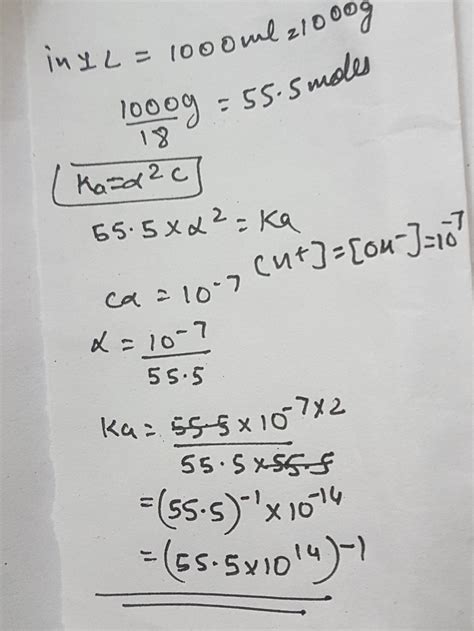 in 1 L = 1000ml = 1000g
1000g/18 = 55.5 moles
Ka=α²c
55.5 × α² = Ka
cα = 10⁻⁷ [H+]=[OH⁻]=10⁻⁷
α = 10⁻⁷/55.5
Ka = 55.5 × 10⁻⁷ˣ²/55.5 × 55.5
= (55.5)⁻¹ × 10⁻¹⁴
= (55.5×10¹⁴)⁻¹